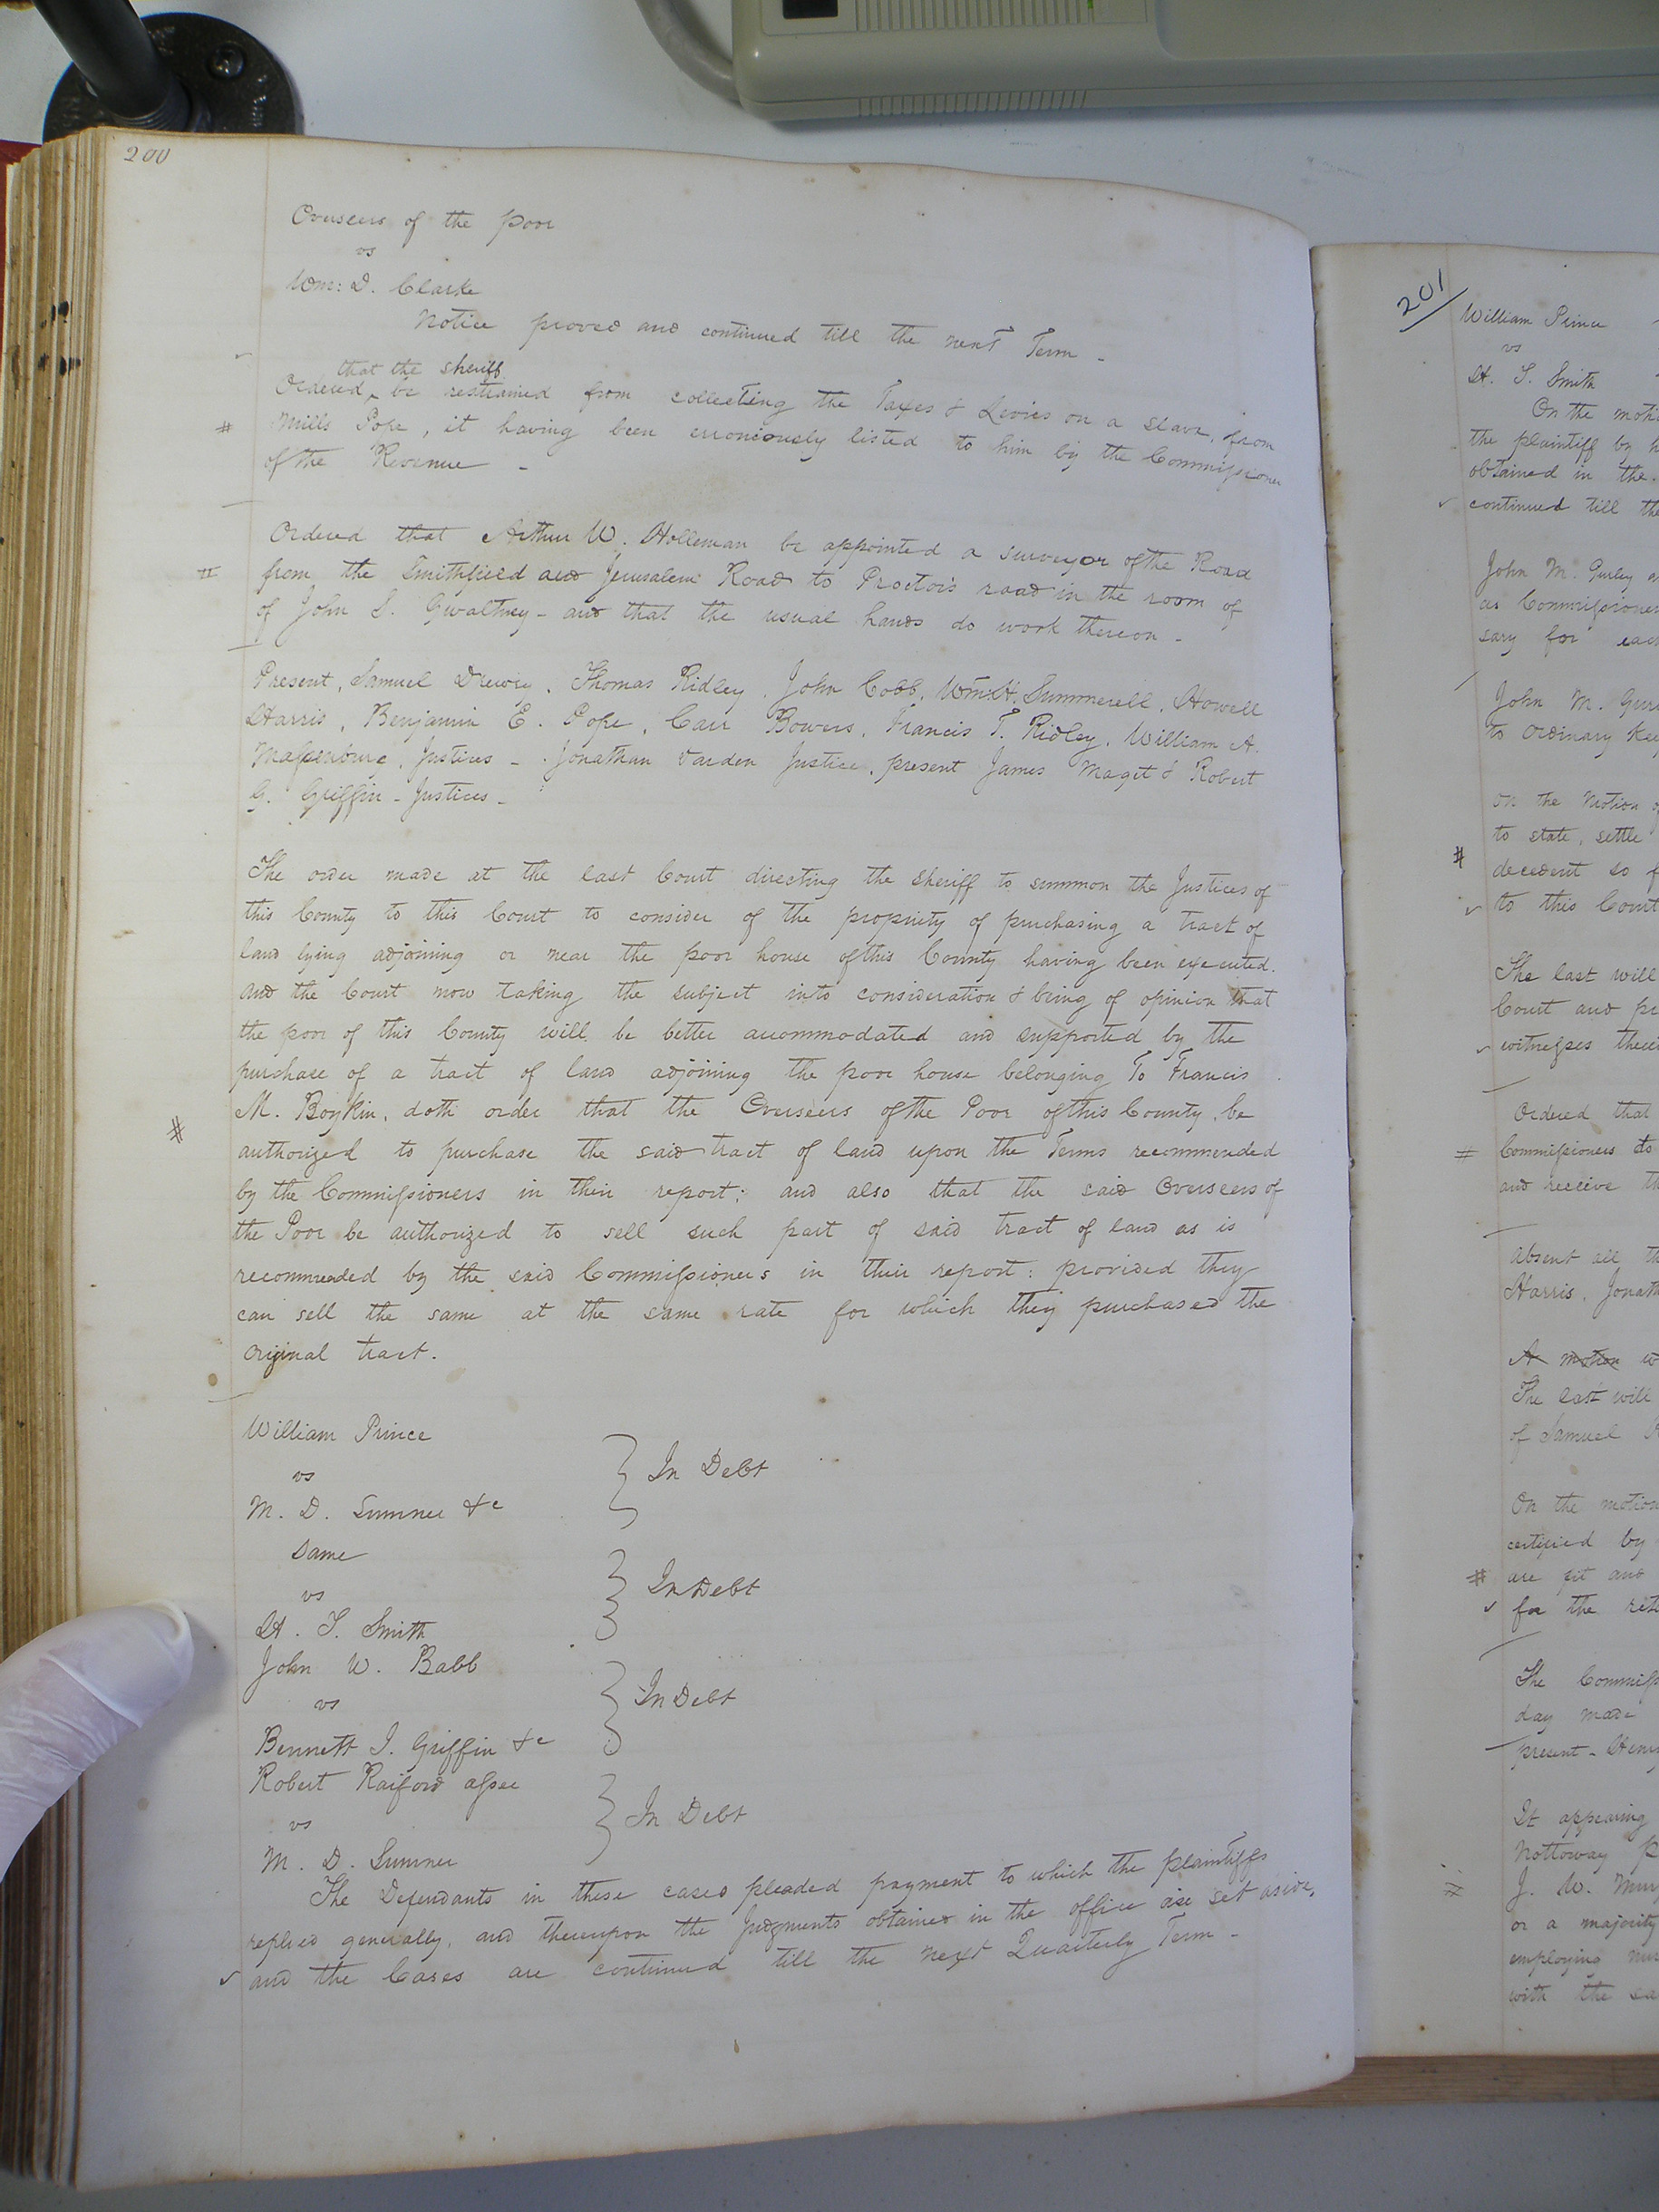 200
Overseers of the Poor
vs
Wm: D. Clarke
Notice proved and continued till the next Term -
that the sheriff
Ordered ^ be restrained from collecting the Taxes & Levies on a slave, from
# Mills Pope, it having been erroneously listed to him by the Commissioner
of the Revenue -
Ordered that Arthur W. Holleman be appointed a surveyor of the Road
# from the Smithfield and Jerusalem Road to Proctor's road in the room of
of John S. Gwaltney - and that the usual hands do work thereon -
Present, Samuel Drewry, Thomas Ridley, John Cobb, Wm: H. Summerell, Howell
Harris, Benjamin E. Pope, Carr Bowers, Francis T. Ridley, William A.
Massenburg, Justices - Jonathan Darden Justice, present James Maget & Robert
G. Griffin - Justices -
The order made at the last Court directing the sheriff to summon the Justices of
this County to this Court to consider of the propriety of purchasing a tract of
land lying adjoining or near the poor house of this County having been executed.
and the Court now taking the subject into consideration & being of opinion that
the poor of this County will be better accommodated and supported by the
purchase of a tract of land adjoining the poor house belonging To Francis
# M. Boykin, doth order that the Overseers of the Poor of this County, be
authorized to purchase the said tract of land upon the Terms recommended
by the Commissioners in their report; and also that the said Overseers of
the Poor be authorized to sell such part of said tract of land as is
recommended by the said Commissioners in their report: provided they
can sell the same at the same rate for which they purchased the
original tract.
William Prince
vs
In Debt
M. D. Sumner &c
Same
vs
In Debt
H. T. Smith
John W. Babb
vs
In Debt
Bennett J. Griffin &c
Robert Raiford assee
vs
In Debt
M. D. Sumner
The Defendants in these cases pleaded payment to which the plaintiffs
replied generally, and thereupon the Judgments obtained in the office are set aside,
✓ and the Cases are continued till the next Quarterly Term -
201
William Prince
vs
H. T. Smith
On the moti
the plaintiff by h
obtained in the
✓ continued till the
John M. Gurley
as Commissioner
sary for eac
John M. Gur
to Ordinary Kee
On the Motion
to state, settle
# decedent so f
✓ to this Court
The last will
Court and pr
✓ witnesses there
Ordered that
# Commissioners to
and receive th
Absent all th
Harris, Jonath
A motion w
The last will
of Samuel
On the motion
certified by
# are fit and
✓ for the ret
The Commiss
day made
present - Hen
It appearing
Nottoway p
# J. W. Mur
or a majority
employing
with the sa